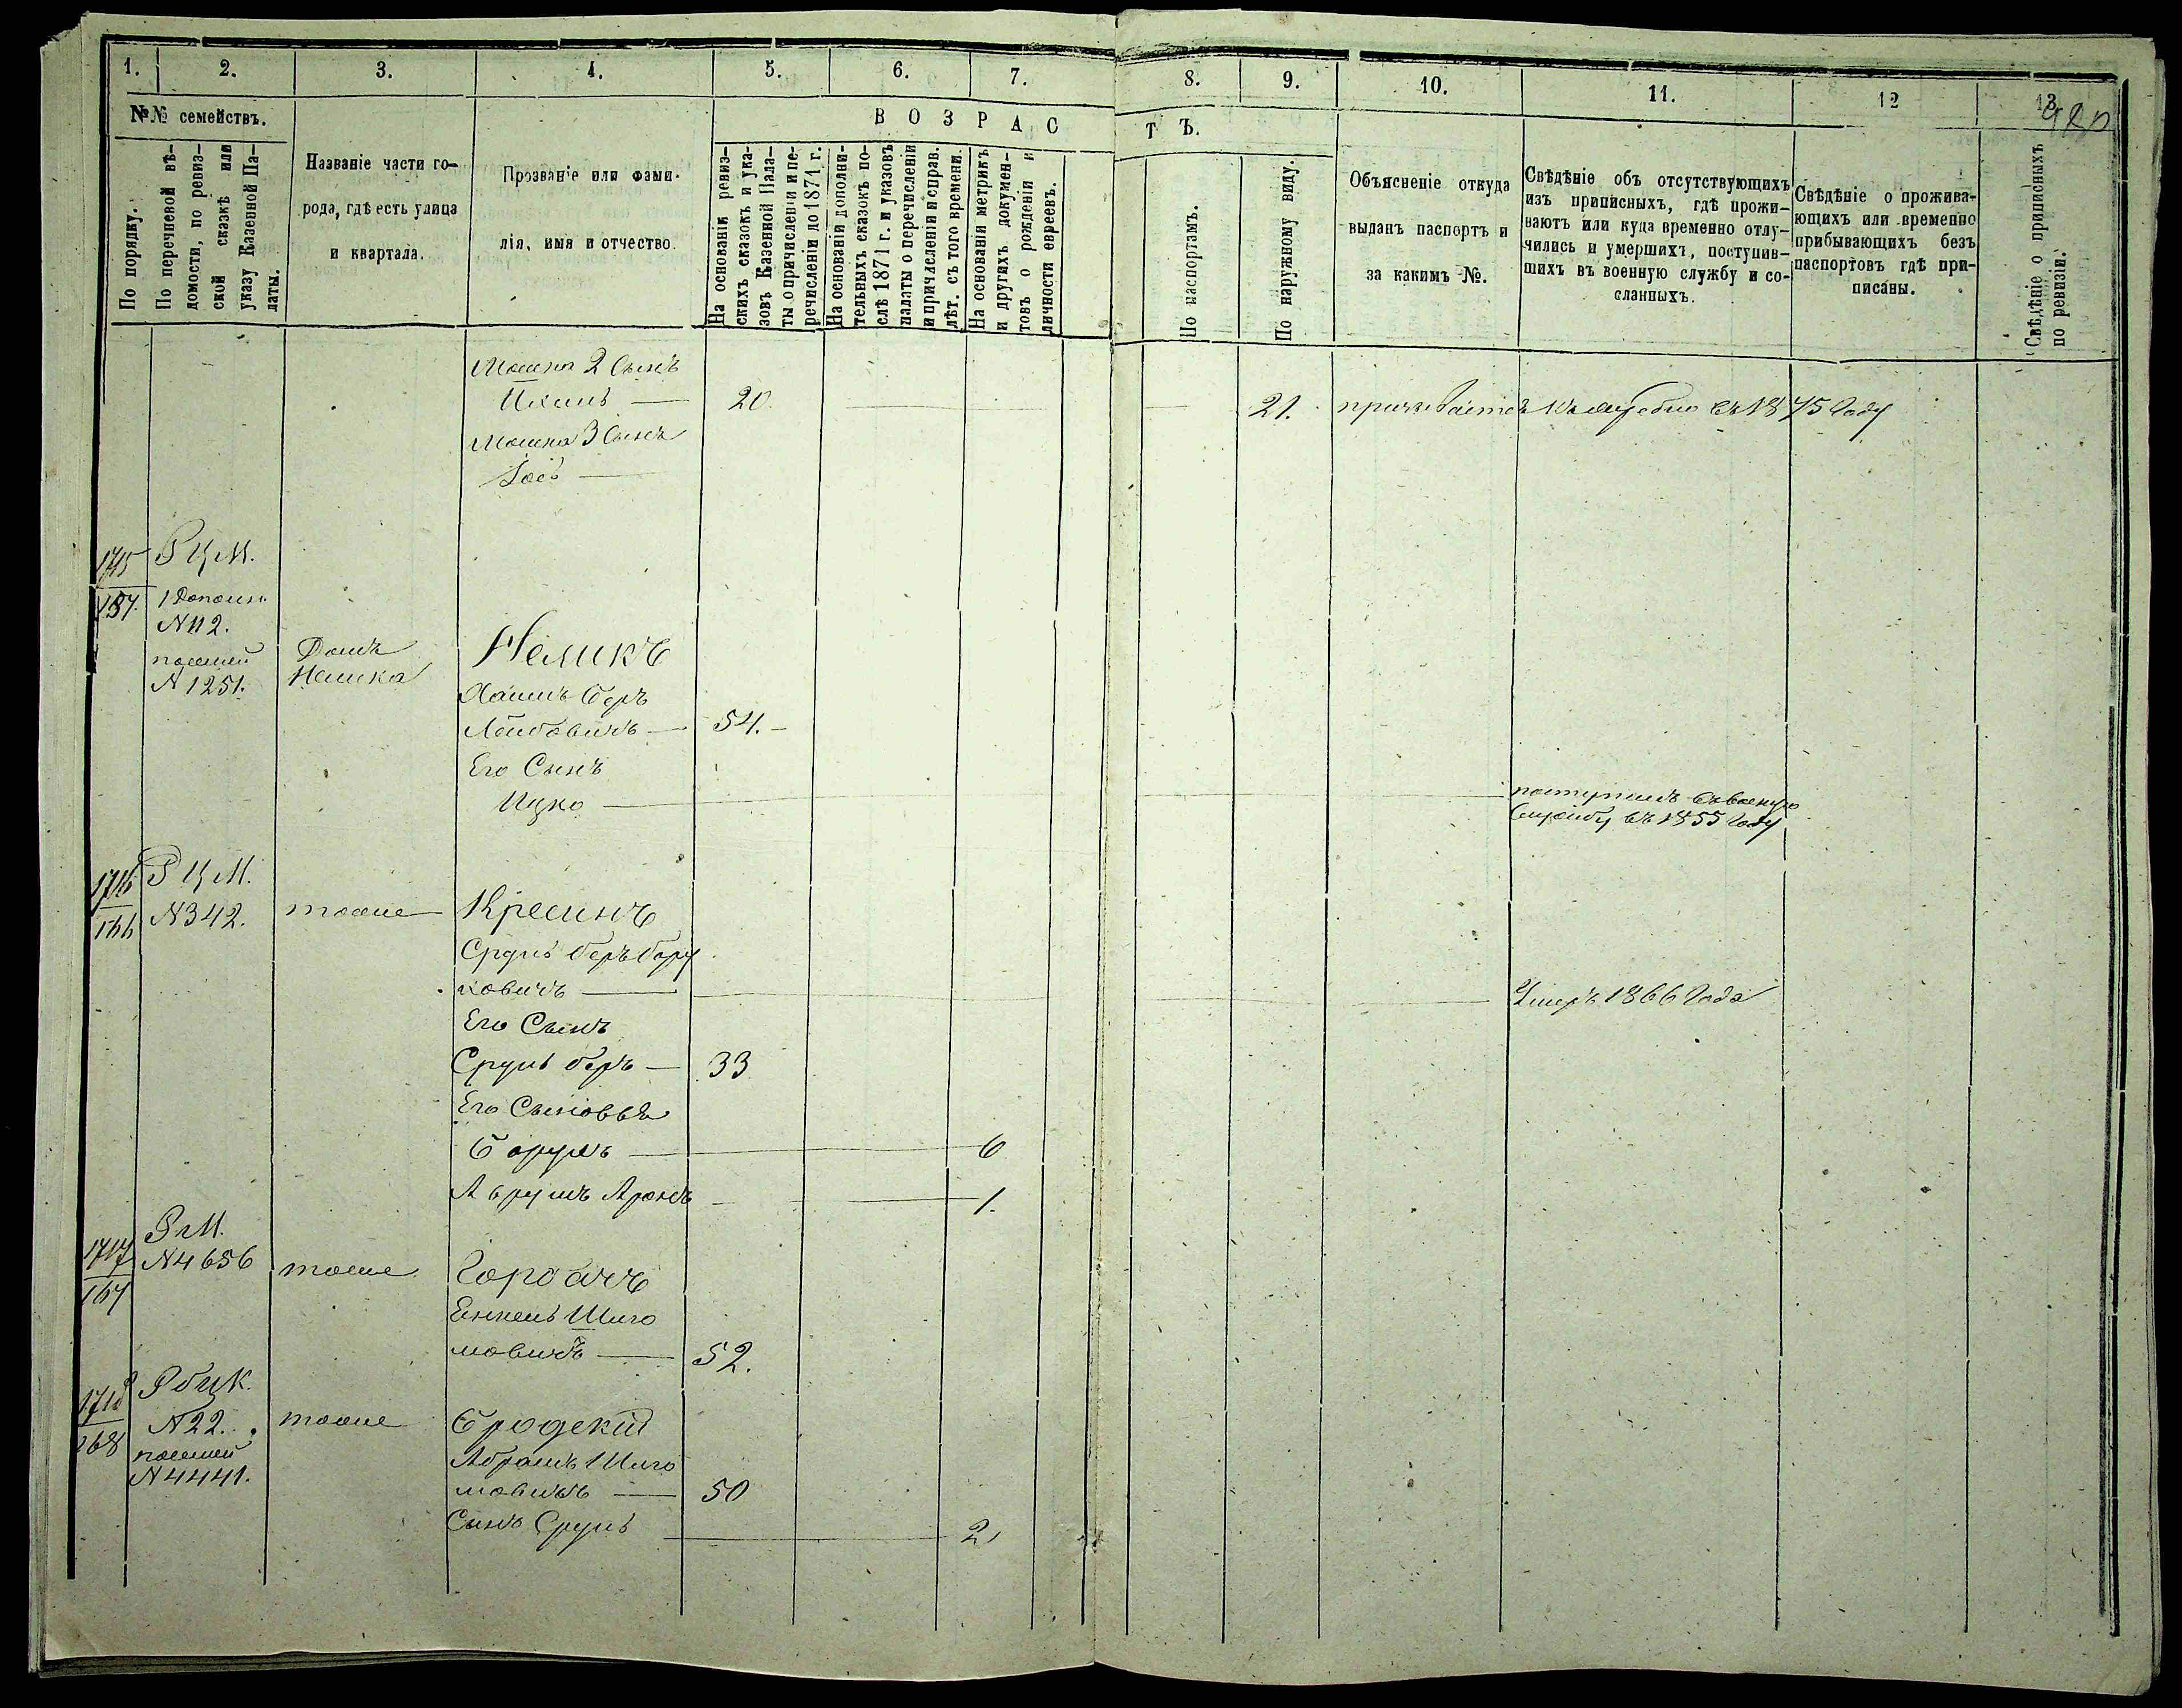 1. 2. 3. 4. 5. 6. 7. 8. 9. 10. 11. 12 13
№№ семействъ.
По порядку.
По перечневой вѣ-
домости, по ревиз-
ской сказкѣ или
указу Казенной Па-
латы.
Названіе части го-
рода, гдѣ есть улица
и квартала.
Прозваніе или фами-
лія, имя и отчество.
ВОЗРАСТЪ.
На основаніи ревиз-
скихъ сказокъ и ука-
зовъ Казенной Пала-
ты о причисленіи и пе-
речисленіи до 1871 г.
На основаніи дополни-
тельныхъ сказокъ по-
слѣ 1871 г. и указовъ
палаты о перечисленіи
и причисленіи и справ.
лѣт. съ того времени.
На основаніи метрикъ
и другихъ докумен-
товъ о рожденіи и
личности евреевъ.
По паспортамъ.
По наружному виду.
Объясненіе откуда
выданъ паспортъ и
за какимъ №.
Свѣдѣніе объ отсутствующихъ
изъ приписныхъ, гдѣ прожи-
ваютъ или куда временно отлу-
чились и умершихъ, поступив-
шихъ въ военную службу и со-
сланныхъ.
Свѣдѣніе о прожива-
ющихъ или временно
прибывающихъ безъ
паспортовъ гдѣ при-
писаны.
Свѣдѣніе о приписныхъ
по ревизіи.
Мошка 2 Сынъ
20. 21. въ 1875 Году
Мошка 3 Сынъ
Іось
1715 Р Ц М.
167. 1 Дополн.
N 112.
Домъ
N 1251.
Хаимъ Беръ
Лейбовичъ 54.
Его Сынъ
Ицко поступилъ въ военную
Службу въ 1855 Году
1716 Р Ц М.
166 N 342. тоже Кресинъ
Сруль Беръ Бору
ховичъ Умеръ 1866 Года
Его Сынъ
Сруль Беръ 33
Его Сыновья
Борухъ 6
Аврумъ Аронъ 1.
1717 N 4656 тоже
167
Шлио
мовичъ 52.
1718
168 N 22. тоже Бродскій
Абрамъ Шлио
N 4441. мовичъ 50
Сынъ Сруль 2